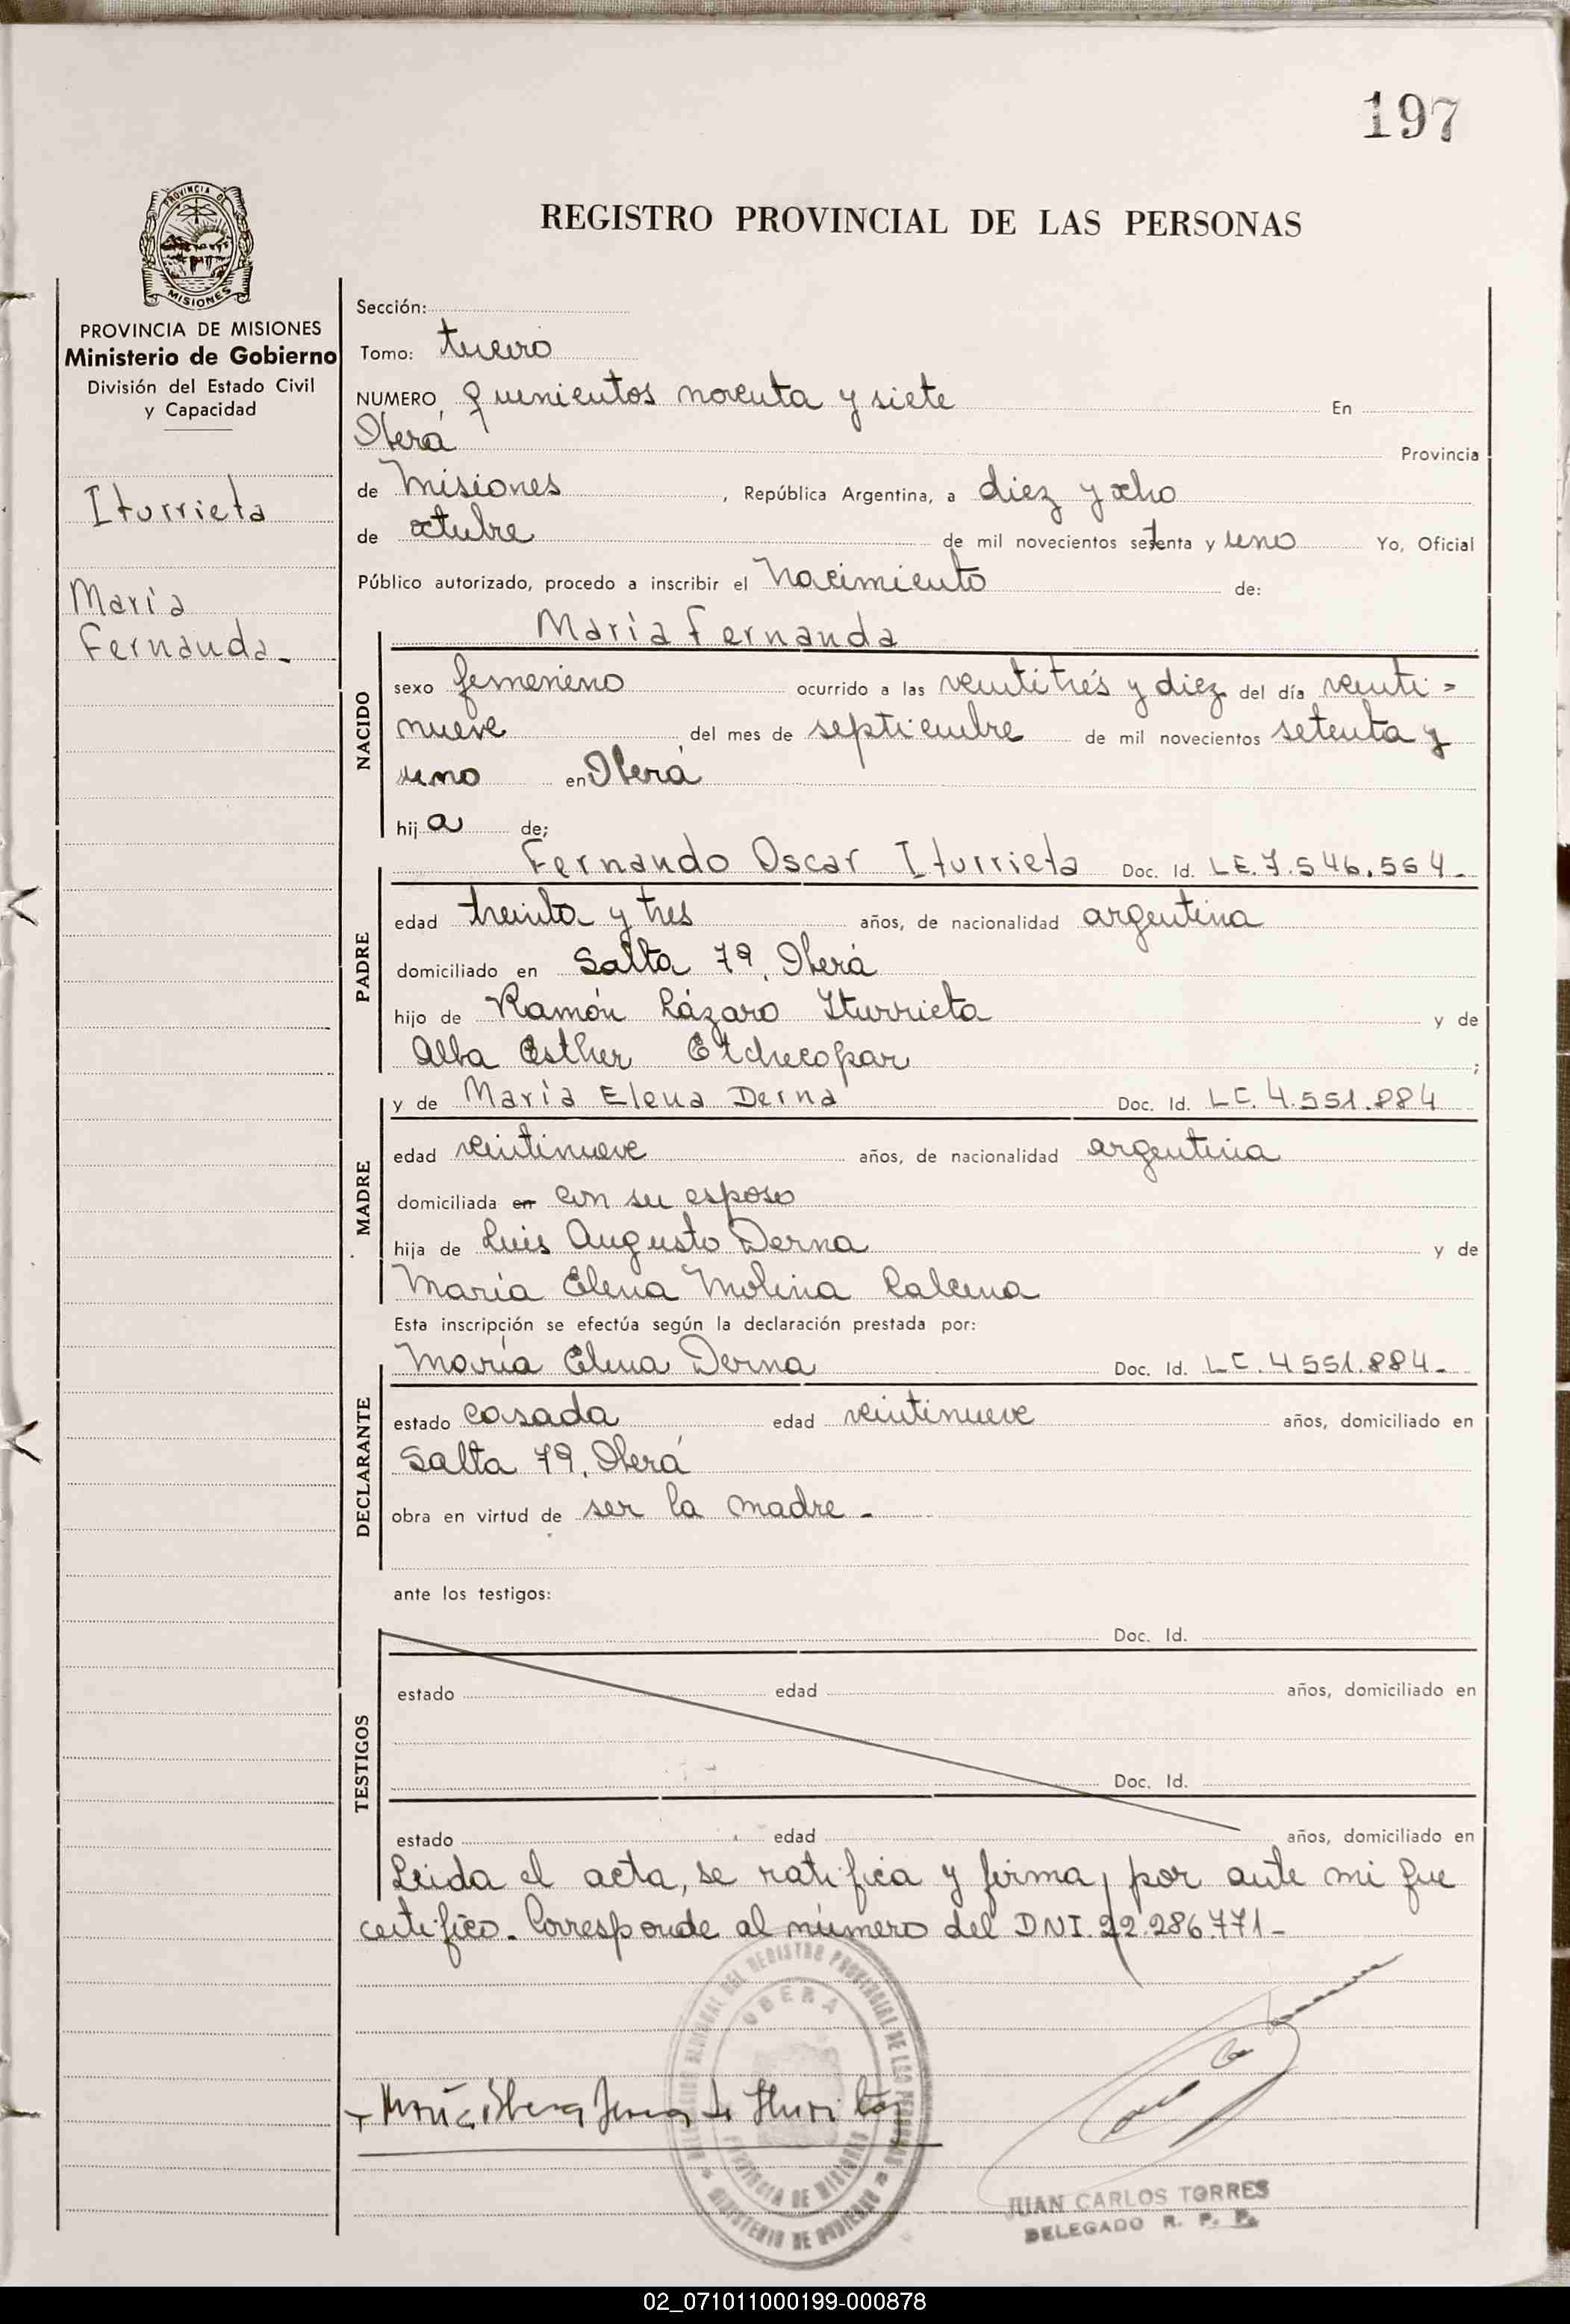 197
REGISTRO PROVINCIAL DE LAS PERSONAS
PROVINCIA DE
MISIONES
PROVINCIA DE MISIONES
Ministerio de Gobierno
División del Estado Civil
y Capacidad
Iturrieta
María
Fernanda.-
Sección:
Tomo: tercero
NUMERO quinientos noventa y siete En
Oberá Provincia
de Misiones, República Argentina, a diez y ocho
de octubre de mil novecientos setenta y uno Yo, Oficial
Público autorizado, procedo a inscribir el Nacimiento de:
María Fernanda
NACIDO
sexo femenino ocurrido a las veintitrés y diez del día veinti=
nueve del mes de septiembre de mil novecientos setenta y
uno en Oberá
hija de:
Fernando Oscar Iturrieta Doc. Id. LE. 7.546.554-
PADRE
edad treinta y tres años, de nacionalidad argentina
domiciliado en Salta 79, Oberá
hijo de Ramón Lázaro Iturrieta y de
Alba Esther Etchecopar ;
y de María Elena Derna Doc. Id. LC. 4.551.884
MADRE
edad veintinueve años, de nacionalidad argentina
domiciliada en con su esposo
hija de Luis Augusto Derna y de
María Elena Molina
Esta inscripción se efectúa según la declaración prestada por:
María Elena Derna Doc. Id. LC. 4551.884-
DECLARANTE
estado casada edad veintinueve años, domiciliado en
Salta 79, Oberá
obra en virtud de ser la madre -
ante los testigos:
Doc. Id.
TESTIGOS
estado edad años, domiciliado en
Doc. Id.
estado edad años, domiciliado en
Leida el acta, se ratifica y firma, por ante mi que
certifico. Corresponde al número del DNI. 22.286.771-
REGISTRO PROVINCIAL DE LAS PERSONAS
OBERA
PROVINCIA DE MISIONES
MINISTERIO DE GOBIERNO
María Elena Derna de Iturrieta
JUAN CARLOS TORRES
DELEGADO R. P. P.
02_071011000199-000878